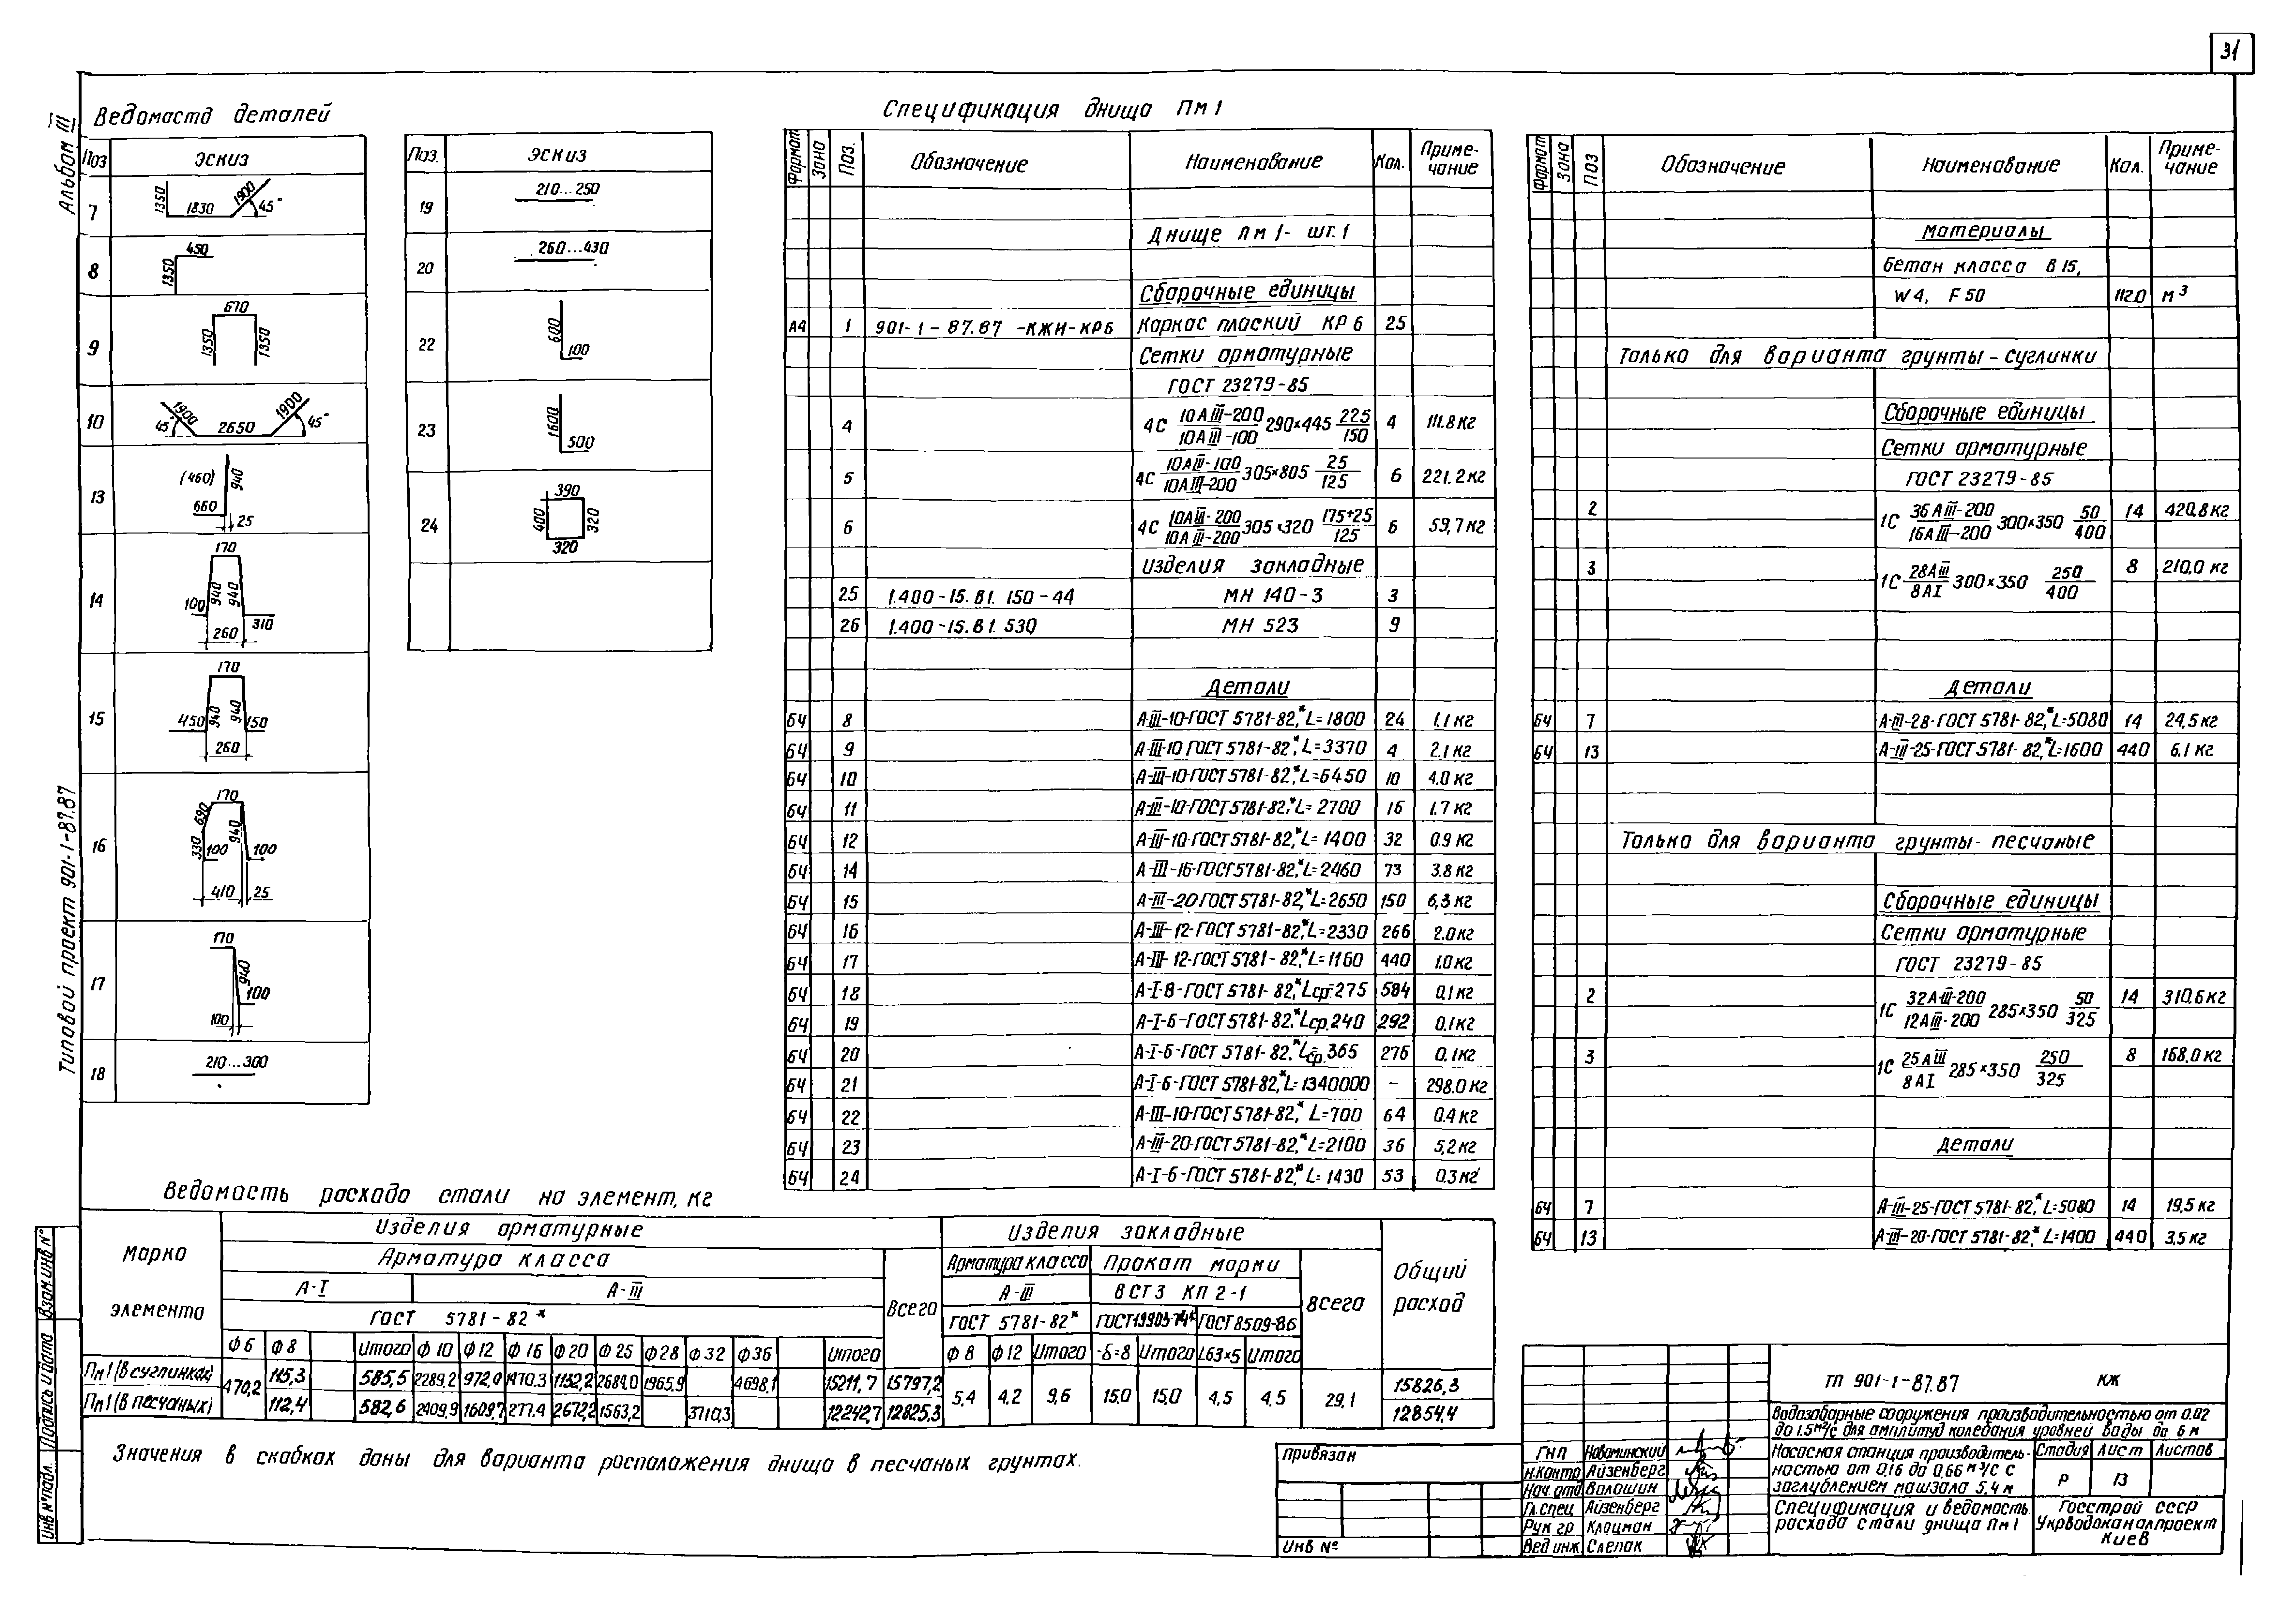 31
Альбом III
Типовой проект 901-1-87.87
Ведомость деталей
Поз Эскиз
7 1350 1830 1900 45°
8 450 1350
9 670 1350 1350
10 1900 1900 45° 2650 45°
13 (460) 940 660 25
14 170 940 940 100 310 260
15 170 940 940 450 150 260
16 170 690 940 330 100 100 410 25
17 170 940 100 100
18 210...300
Поз. Эскиз
19 210...250
20 260...430
22 600 100
23 1600 500
24 390 400 320 320
Спецификация днища Пм1
Формат Зона Поз. Обозначение Наименование Кол. Приме-
чание
Днище Пм1- шт.1
Сборочные единицы
А4 1 901-1-87.87 -КЖИ-КР6 Каркас плоский КР 6 25
Сетки арматурные
ГОСТ 23279-85
4 4С 10АIII-200/10АIII-100 290×445 225/150 4 111.8 кг
5 4С 10АIII-100/10АIII-200 305×805 25/125 6 221.2 кг
6 4С 10АIII-200/10АIII-200 305×320 175+25/125 6 59,7 кг
Изделия закладные
25 1.400-15.В1. 150-44 МН 140-3 3
26 1.400-15.В1. 530 МН 523 9
Детали
БЧ 8 А-III-10-ГОСТ 5781-82*, L=1800 24 1.1 кг
БЧ 9 А-III-10 ГОСТ 5781-82*, L=3370 4 2.1 кг
БЧ 10 А-III-10-ГОСТ 5781-82*, L=6450 10 4.0 кг
БЧ 11 А-III-10-ГОСТ 5781-82*, L=2700 16 1.7 кг
БЧ 12 А-III-10-ГОСТ 5781-82*, L=1400 32 0.9 кг
БЧ 14 А-III-16-ГОСТ 5781-82*, L=2460 73 3.8 кг
БЧ 15 А-III-20 ГОСТ 5781-82*, L=2650 150 6,3 кг
БЧ 16 А-III-12-ГОСТ 5781-82*, L=2330 266 2.0 кг
БЧ 17 А-III-12-ГОСТ 5781-82*, L=1160 440 1.0 кг
БЧ 18 А-I-8-ГОСТ 5781-82*, Lср=275 584 0.1 кг
БЧ 19 А-I-6-ГОСТ 5781-82*, Lср.240 292 0.1 кг
БЧ 20 А-I-6-ГОСТ 5781-82*, Lср.=365 276 0.1 кг
БЧ 21 А-I-6-ГОСТ 5781-82*, L=1340000 - 298.0 кг
БЧ 22 А-III-10-ГОСТ 5781-82*, L=700 64 0.4 кг
БЧ 23 А-III-20-ГОСТ 5781-82*, L=2100 36 5,2 кг
БЧ 24 А-I-6-ГОСТ 5781-82*, L=1430 53 0.3 кг
Формат Зона Поз Обозначение Наименование Кол. Приме-
чание
Материалы
бетон класса В 15,
W4, F50 112.0 м³
Только для варианта грунты-суглинки
Сборочные единицы
Сетки арматурные
ГОСТ 23279-85
2 1С 36АIII-200/16АIII-200 300×350 50/400 14 420,8 кг
3 1С 28АIII/8АI 300×350 250/400 8 210,0 кг
Детали
БЧ 7 А-III-28-ГОСТ 5781-82*, L=5080 14 24,5 кг
БЧ 13 А-III-25-ГОСТ 5781-82*, L=1600 440 6.1 кг
Только для варианта грунты-песчаные
Сборочные единицы
Сетки арматурные
ГОСТ 23279-85
2 1С 32А-III-200/12АIII-200 285×350 50/325 14 310,6 кг
3 1С 25АIII/8АI 285×350 250/325 8 168.0 кг
Детали
БЧ 7 А-III-25-ГОСТ 5781-82*, L=5080 14 19,5 кг
БЧ 13 А-III-20-ГОСТ 5781-82*, L=1400 440 3,5 кг
Ведомость расхода стали на элемент, кг
Марка элемента Изделия арматурные Изделия закладные Общий расход
Арматура класса Всего Арматура класса Прокат марки Всего
А-I А-III А-III ВСТ3 КП2-1
ГОСТ 5781-82* ГОСТ 5781-82* ГОСТ19903-74* ГОСТ 8509-86
Ф6 Ф8 Итого Ф10 Ф12 Ф16 Ф20 Ф25 Ф28 Ф32 Ф36 Итого Ф8 Ф12 Итого -δ=8 Итого L63×5 Итого
Пм1(в суглинках) 470,2 115,3 585,5 2289,2 972,0 1470.3 1132,2 2684.0 1965,9 4698,1 15211,7 15797,2 5,4 4.2 9,6 15.0 15.0 4,5 4.5 29.1 15826,3
Пм1(в песчаных) 112,4 582,6 2409,9 1609,7 277.4 2672,2 1563,2 3710,3 12242,7 12825,3 12854,4
Значения в скобках даны для варианта расположения днища в песчаных грунтах.
Взам.инв №
Подпись и дата
Инв № подл.
Привязан
Инв №
ГИП Новоминский
Н.контр Айзенберг
Нач.отд Волошин
Гл.спец Айзенберг
Рук гр Клоцман
Вед инж Слепак
ТП 901-1-87.87 КЖ
Водозаборные сооружения производительностью от 0.02
до 1.5 м³/с для амплитуд колебания уровней воды до 6 м
Насосная станция производитель-
ностью от 0,16 до 0,66 м³/с с
заглублением машзала 5,4 м
Стадия Лист Листов
Р 13
Спецификация и ведомость
расхода стали днища Пм1
Госстрой СССР
Укрводоканалпроект
Киев